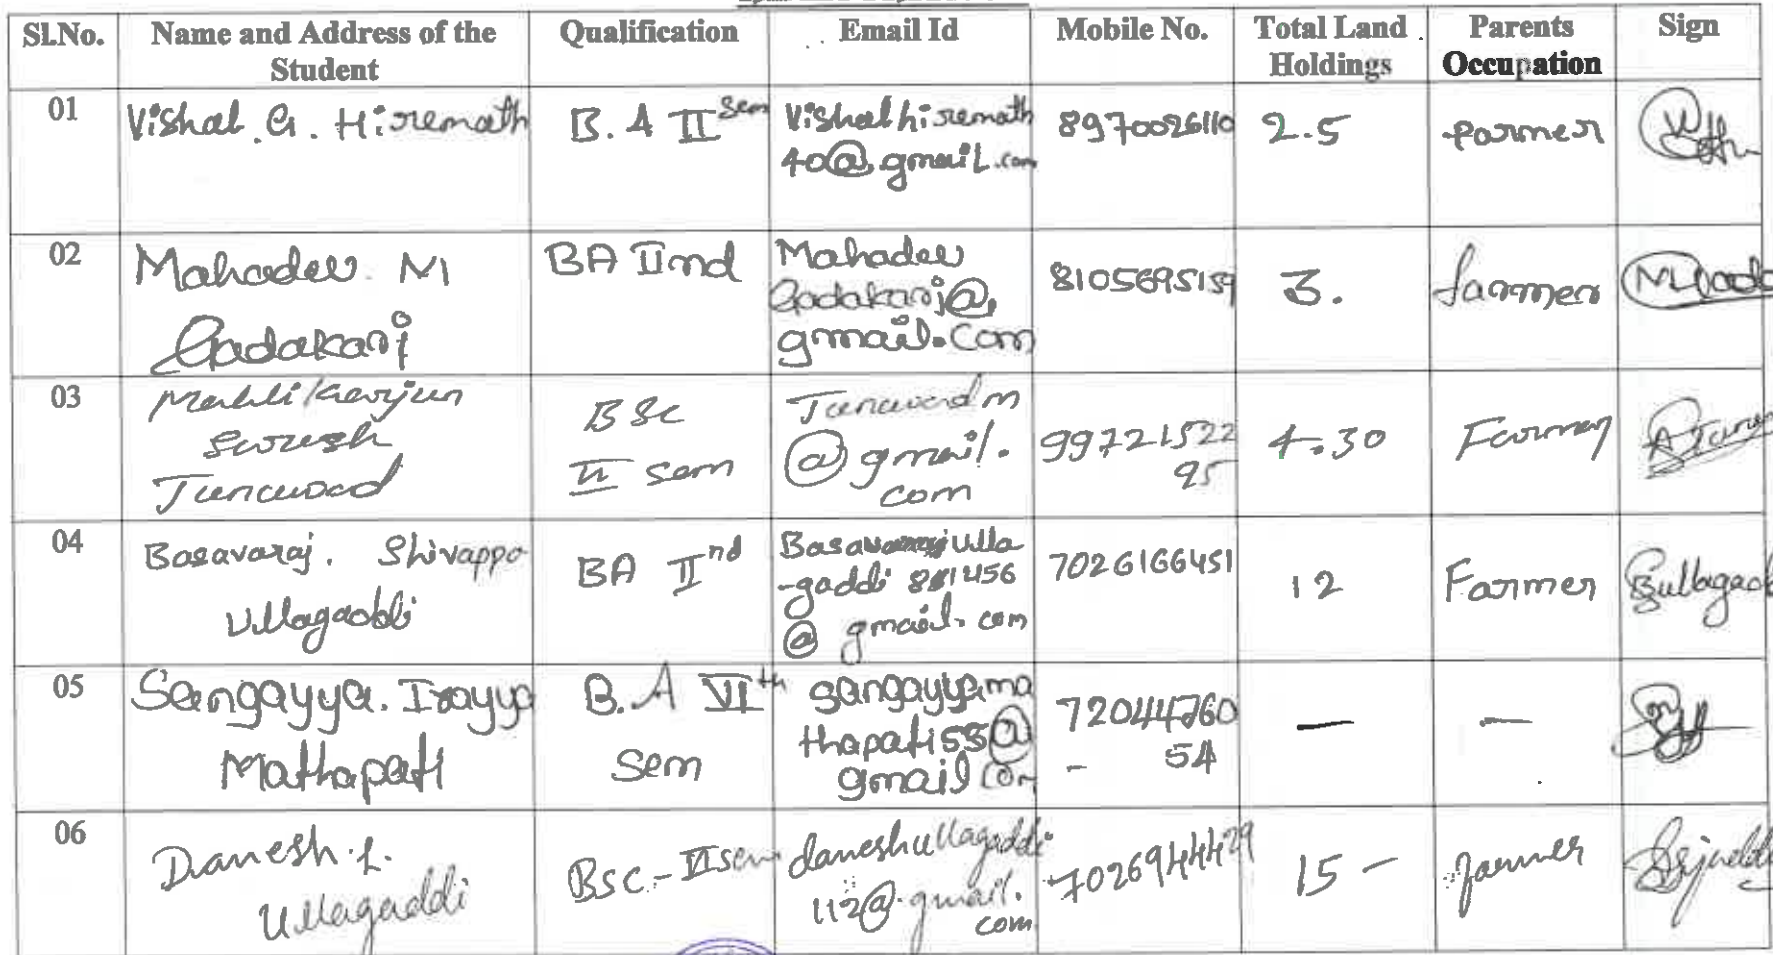 Sl.No. Name and Address of the Student Qualification Email Id Mobile No. Total Land Holdings Parents Occupation Sign
01 Vishal. G. Hiremath B.A II Sem Vishalhiremath
40@gmail.com 8970026110 2.5 farmer
02 Mahadev. M
Gadakari BA IInd Mahadev
Gadakari@
gmail.com 8105695159 3. farmer
03 Mallikarjun
Suresh
Junawad BSc
II Sem Junawadm
@gmail.
com 99721522
95 4.30 Farmer
04 Basavaraj. Shivappa
Ullagaddi BA IInd Basavarajulla
-gaddi
@gmail.com 7026166451 12 Farmer Bullagaddi
05 Sangayya. Irayya
Mathapati B.A VIth
Sem sangayyama
thapati55@
gmail.com 72044760
54 — —
06 Danesh.L.
Ullagaddi BSc-II sem daneshullagaddi
112@gmail.
com 7026944429 15 - farmer